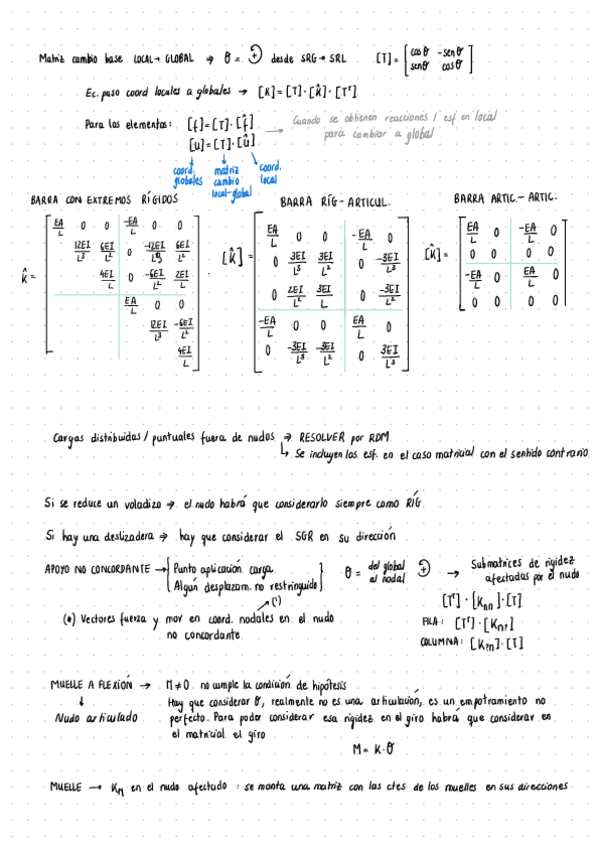 Matriz cambio base LOCAL→GLOBAL ⇒ θ = ↺+ desde SRG→SRL [T] = [cosθ -senθ; senθ cosθ]
Ec. paso coord locales a globales → [K]=[T]·[K̂]·[Tᵗ]
Para los elementos: [f]=[T]·[f̂] → Cuando se obtienen reacciones / esf en local
[u]=[T]·[û] para cambiar a global
coord. globales matriz cambio local-global coord. local
BARRA CON EXTREMOS RÍGIDOS BARRA RÍG-ARTICUL. BARRA ARTIC.-ARTIC.
K̂ =
EA/L 0 0 -EA/L 0 0
12EI/L³ 6EI/L² 0 -12EI/L³ 6EI/L²
4EI/L 0 -6EI/L² 2EI/L
EA/L 0 0
12EI/L³ -6EI/L²
4EI/L
[K̂] =
EA/L 0 0 -EA/L 0
0 3EI/L³ 3EI/L² 0 -3EI/L³
0 3EI/L 0 -3EI/L²
-EA/L 0 0 EA/L 0
0 -3EI/L³ -3EI/L² 0 3EI/L³
[K̂] =
EA/L 0 -EA/L 0
0 0 0 0
-EA/L 0 EA/L 0
0 0 0 0
Cargas distribuidas / puntuales fuera de nudos ⇒ RESOLVER por RDM
↳ Se incluyen los esf. en el caso matricial con el sentido contrario
Si se reduce un voladizo → el nudo habrá que considerarlo siempre como RÍG
Si hay una deslizadera → hay que considerar el SGR en su dirección
APOYO NO CONCORDANTE → { Punto aplicación carga
Algún desplazam. no restringuido }
θ = del global al nodal ↺+ → Submatrices de rigidez
afectadas por el nudo
(*)
[Tᵗ]·[Knn]·[T]
(*) Vectores fuerza y mov en coord. nodales en el nudo
no concordante
FILA: [Tᵗ]·[Kn?]
COLUMNA: [K?n]·[T]
MUELLE A FLEXIÓN → M≠0 no cumple la condición de hipótesis
↓
Nudo articulado
Hay que considerar θ, realmente no es una articulación, es un empotramiento no
perfecto. Para poder considerar esa rigidez en el giro habrá que considerar en
el matricial el giro
M = K·θ
MUELLE → KM en el nudo afectado : se monta una matriz con las ctes de los muelles en sus direcciones